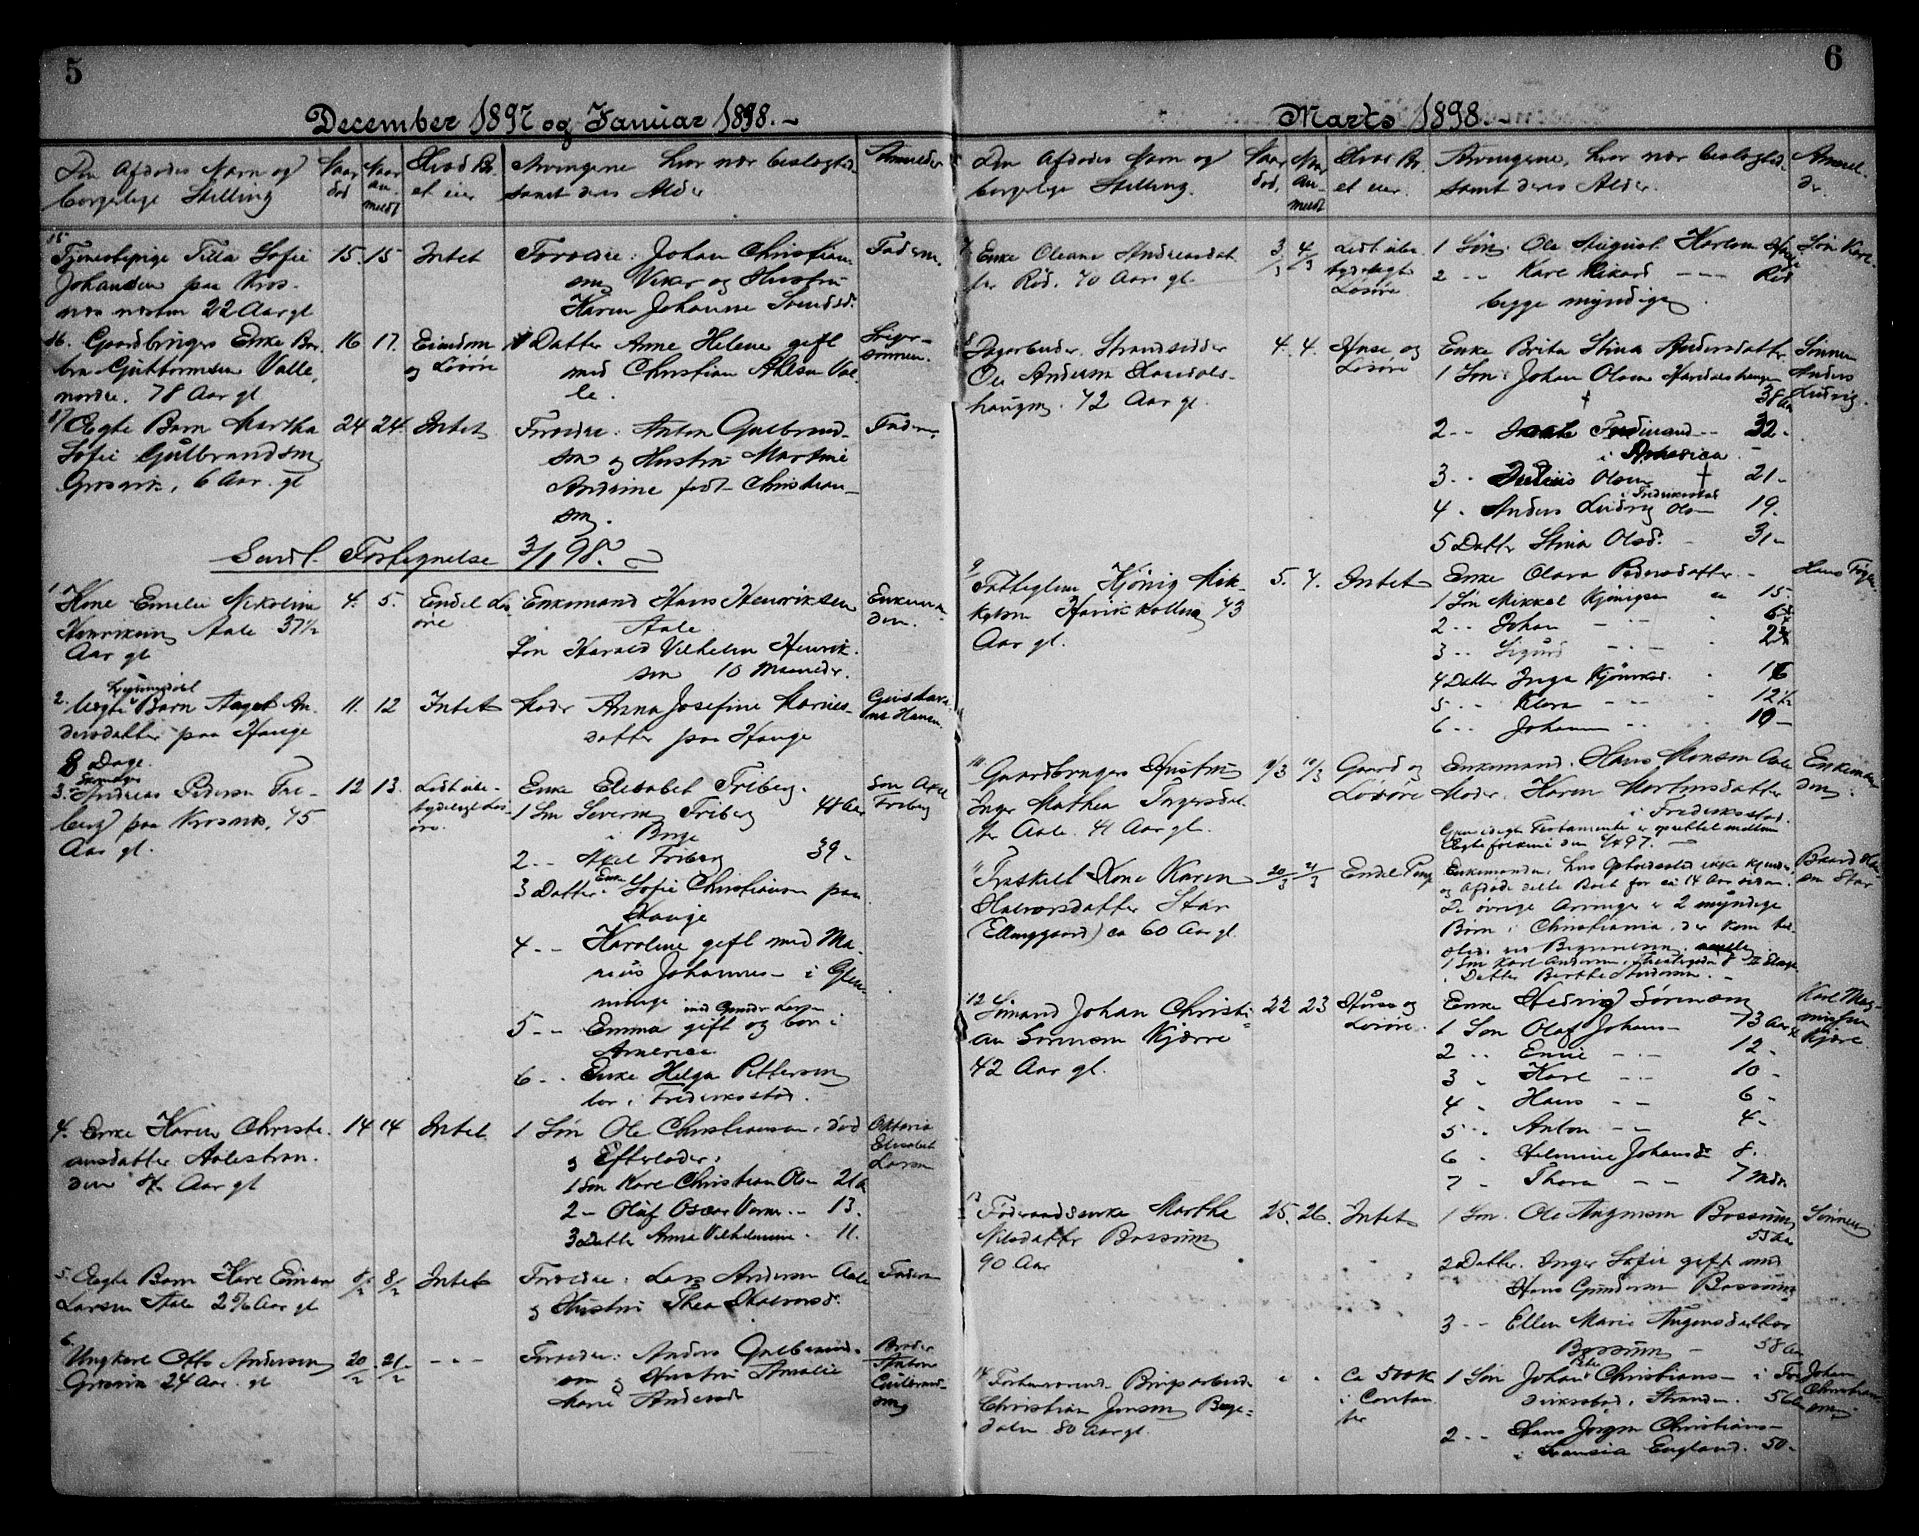 5
December 1897 og Januar 1898.
Den Afdødes Navn og
borgelige Stilling
Naar
død
Naar
an-
meldt
Hvad Bo-
et eier
Arvingerne hvor nær beslægted-
samt deres Alder
Anmelder
15
Tjenestepige Tilla Sofie
Johansen paa Kros-
næs næsten 22 Aar gl
15. 15 Intet
Foreldre: Johan Christian-
sen Viker og Hustru
Karen Johanne Svendsd.
Faderen.
16. Gaardbrugers Enke Bar-
bra Guttormsen Valle,
nordre. 78 Aar gl
16 17. Eiendom
og Løsøre
1 Datter Anne Helene gift
med Christian Ahlsen Val-
le.
Sviger-
sønnen.
17 Ægte Barn Martha
Sofie Gulbrandsen
Græsvik, 6 Aar gl
24 24. Intet
Foreldre: Anton Gulbrand-
sen og Hustru Martine
Andrine født Christian-
sen.
Faderen
Fortegnelse 3/1 98.
1. Kone Emelie Nikoline
Henriksen Aale 37½
Aar gl
4. 5. Endel Løs-
øre
Enkemand Hans Henriksen
Aale.
Søn Harald Vilhelm Henrik-
sen 10 Maaneder.
Enkeman-
den.
2. Uægte Barn Aagot An-
dersdatter paa Hauge
8 Dage.
11. 12 Intet
Moder Anna Josefine Marius-
datter paa Hauge
Hansen.
3. Andreas Pedersen Fri-
berg paa Krosnes, 75
Aar gl.
12 13. Lidt ube-
tydeligt Løs-
øre.
Enke Elisabet Friberg.
1 Søn Severin Friberg 41 Aar
i Borge
2 -- Axel Friberg 39 -
3 Datter Enke Sofie Christiansen paa
Hauge
4 -- Karoline gift med Ma-
rius Johannes- i Glem-
minge
5 -- Emma gift og bor i
Amerika
6 -- Enke Helga Pettersen
bor i Frederiksstad.
Søn Axel
Friberg
4. Enke Karen Christi-
ansdatter Aalestran-
den Aar gl
14 14 Intet
1 Søn Ole Christiansen, død
og Efterlader:
1 Søn Karl Christian Olsen 21 Aar
2 -- Oluf Oscar -- 13.
3 Datter Anna Vilhelmine - 11.
Oktavia
Elisabet
Larsen
5. Ægte Barn Karl Einar
Larsen Aale 2 5/12 Aar gl
8/2 8/2 Intet
Foreldre: Lars Andersen Aale
og Hustru Thea Halvorsd.
Faderen
6.
Ungkarl Otto Andersen
Græsvik 24 Aar gl
20/2 21/2 - - -
Foreldre: Anders Gulbrand-
sen og Hustru Amalie
Marie Andersd
Broder
Anton
Gulbrand-
sen
6
Marts 1898.
Den Afdødes Navn og
borgelige Stilling.
Naar
død.
Naar
an-
meldt
Hvad Bo-
et eier.
Arvingerne, hvor nær beslægted-
samt deres Alder.
Anmel-
der.
7. Enke Oleane Andreasdat-
ter Rød. 70 Aar gl.
3/3 4/3 Lidt ube-
tydeligt
Løsøre
1 Søn. Ole August Karlsen
2 -- Karl Rikard --- Rød
begge myndige
Søn Karl
8
Jagerleder. Strandsidder
Ole Andersen
haugen. 72 Aar gl.
4. 4. Huse og
Løsøre
Enke Brita Stina Andersdatter
1 Søn: Johan Olsen 38 Aar
2 -- Ferdinand -- 32 -
i Amerika
3 -- Julius Olsen 21 -
4 - Anders Ludvig Ols- i Fredriksstad 19.
5 Datter Stina Olsd. - 31 -
Sønnen
Anders
Ludvig.
9
Fattiglem Kjønig Mik-
kelsen 73
Aar gl.
5. 7. Intet
Enke Olava Pedersdatter -
1 Søn Mikkel Kjønigsen 15.
2 -- Johan -- 6
3 -- Sigurd -- 2
4 Datter Inga Kjønigsd. 16
5 -- Klara -- 12½
6 -- Johanne -- 10 -
Hans
10
Gaardbrugers Hustru
Inger Mathea Ingersdat-
ter Aale. 41 Aar gl.
10/3 Gaard og
Løsøre
Enkemand. Hans Monsen Aale
Moder. Karen Martinsdatter
i Frederiksstad.
Gjensidigt Testamente er oprettet mellem
Ægtefolkene den 97.
Enkeman
den.
11
Fraskilt Kone Karen
Halvorsdatter Stær
(Elinggaard) ca 60 Aar gl.
20/3 21/3 Endel Penge
Enkemanden, hvis Opholdssted ikke kjendes
og Afdøde delte Boet for ca 14 Aar siden.
De øvrige Arvinger er 2 myndige
Børn i Christiania, der kom her-
ved Begravelsen.
1 Søn Karl Andersen,
Datter Berthe Andersen.
12
Sømand Johan Christi-
an Sørensen Kjærre
42 Aar gl.
22 23 Huse og
Løsøre.
Enke Hedvig Sørensen
1 Søn Olaf Johans- 13 Aar
2 -- Emil -- 12 -
3 - Karl -- 10 -
4 - Hans -- 6 -
5 -- Anton -- 4 -
6 - Helmine Johansd 8.
7 - Thora -- 7 Mdr.
Karl Mag-
nussen
Kjærre
13
Føderaadsenke Marthe
Nilsdatter Bossum
90 Aar
25. 26. Intet
1 Søn. Ole Augensen Bossum
55 Aar
2 Datter. Inger Sofie gift med
Hans Gundersen Bossum
3 -- Ellen Marie Augensdatter
Bossum - 58 Aar
Sønnen
14
Forhenværende Brugsarbeider
Christian Jensen Berge-
dalen 80 Aar gl.
Ca 500 K
i Contan-
ter
1 Søn Johan Christians- i Fre-
driksstad, Stranden. 56 Aar
2 -- Hans Jørgen Christians-
i England. 50 -
Johan
Christian-
sen